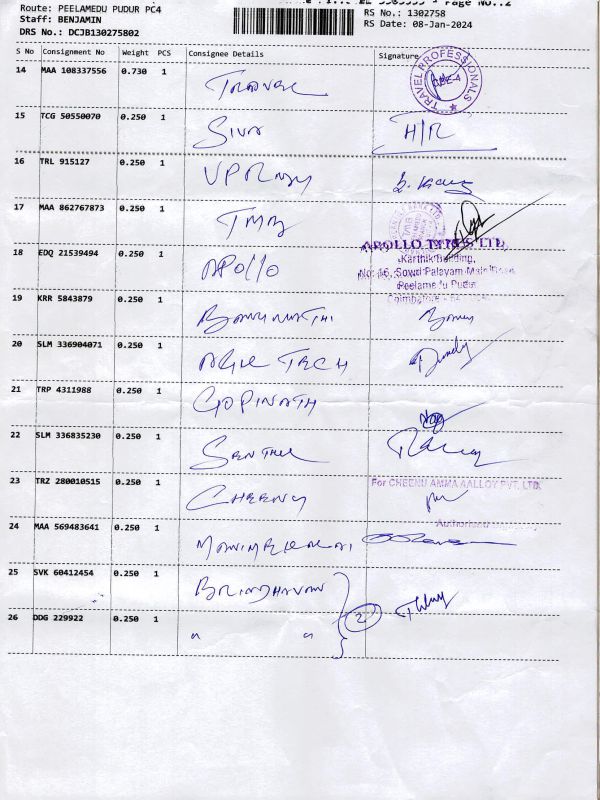 Page No.:2
Route: PEELAMEDU PUDUR PC4
RS No.: 1302758
Staff: BENJAMIN
RS Date: 08-Jan-2024
DRS No.: DCJB130275802
S No Consignment No Weight PCS Consignee Details Signature
14 MAA 108337556 0.730 1
TRAVEL PROFESSIONALS
CBE-4
15 TCG 50550070 0.250 1 SIVA H/R
16 TRL 915127 0.250 1
17 MAA 862767873 0.250 1 TMB
18 EDQ 21539494 0.250 1 APOLLO
APOLLO TYRES LTD,
Karthik Building,
No: 16, Sowri Palayam Main Road,
Peelamedu Pudur
Coimbatore
19 KRR 5843879 0.250 1
20 SLM 336904071 0.250 1 TECH
21 TRP 4311988 0.250 1 GOPINATH
22 SLM 336835230 0.250 1 SENTHIL
23 TRZ 280010515 0.250 1 CHEENU
For CHEENU AMMA AALLOY PVT. LTD.
Authorised
24 MAA 569483641 0.250 1 MANIMEKALAI
25 SVK 60412454 0.250 1 BRINDHAVAN
2
26 DDG 229922 0.250 1 " "